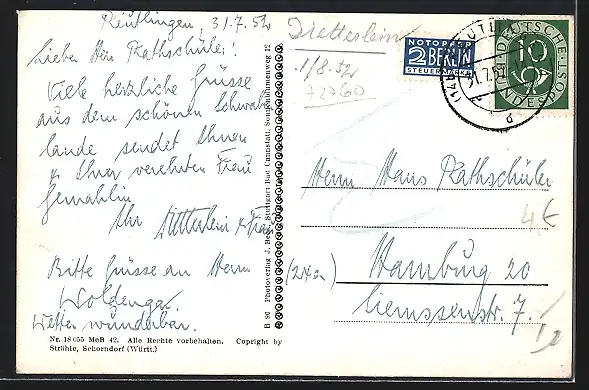 Reutlingen 31.7.52
Lieber Herr Rathschüler!
Viele herzliche Grüsse
aus dem schönen Schwaben
lande sendet Ihnen
u Ihrer verehrten Frau
Gemahlin
Ihr Dietterlein u Frau
Bitte Grüsse an Herrn
Woldenga.
Wetter wunderbar.
Nr. 18 055 MeB 42. Alle Rechte vorbehalten. Copright by
Strähle, Schorndorf (Württ.)
B 90 Photoverlag J. Stuttgart-Bad Cannstatt,
Dietterlein
1/8.52
72760
NOTOPFER
2 BERLIN
STEUERMARKE
DEUTSCHE
10
BUNDESPOST
Herrn Hans Rathschüler
4,€
(24a) Hamburg 20
Siemssenstr. 7.